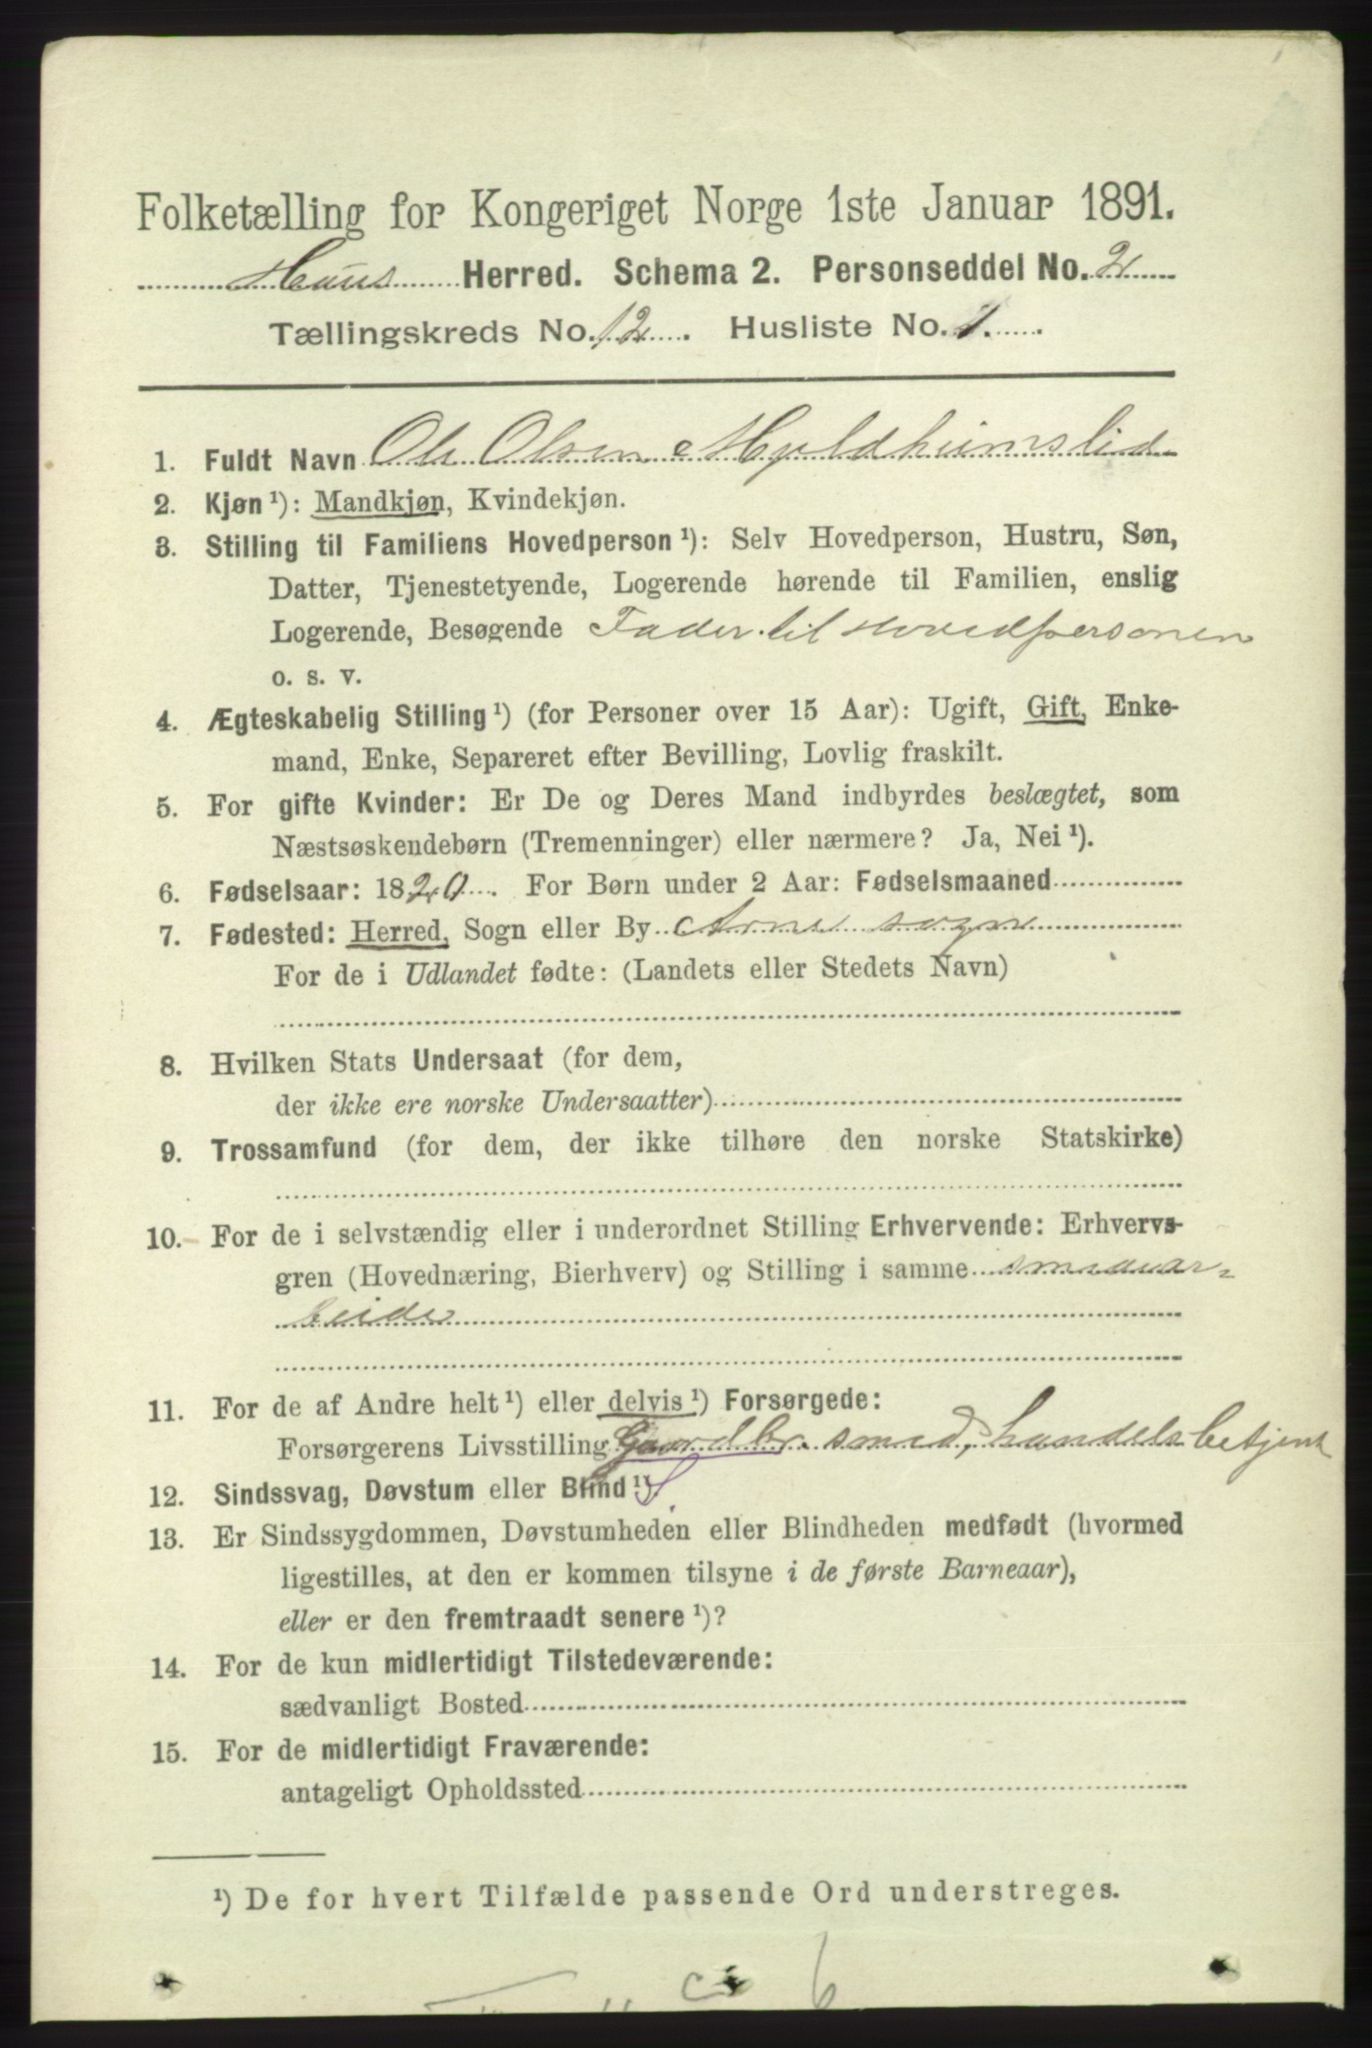 Folketælling for Kongeriget Norge 1ste Januar 1891.
Haus Herred. Schema 2. Personseddel No. 2
Tællingskreds No. 12. Husliste No. 1.
1. Fuldt Navn Ole Olsen Myldheimslid
2. Kjøn¹): Mandkjøn, Kvindekjøn.
3. Stilling til Familiens Hovedperson¹): Selv Hovedperson, Hustru, Søn,
Datter, Tjenestetyende, Logerende hørende til Familien, enslig
Logerende, Besøgende Fader til Hovedpersonen
o. s. v.
4. Ægteskabelig Stilling¹) (for Personer over 15 Aar): Ugift, Gift, Enke-
mand, Enke, Separeret efter Bevilling, Lovlig fraskilt.
5. For gifte Kvinder: Er De og Deres Mand indbyrdes beslægtet, som
Næstsøskendebørn (Tremenninger) eller nærmere? Ja, Nei¹).
6. Fødselsaar: 1820. For Børn under 2 Aar: Fødselsmaaned
7. Fødested: Herred, Sogn eller By Arne sogn
For de i Udlandet fødte: (Landets eller Stedets Navn)
8. Hvilken Stats Undersaat (for dem,
der ikke ere norske Undersaatter)
9. Trossamfund (for dem, der ikke tilhøre den norske Statskirke)
10. For de i selvstændig eller i underordnet Stilling Erhvervende: Erhvervs-
gren (Hovednæring, Bierhverv) og Stilling i samme smedar-
beide
11. For de af Andre helt¹) eller delvis¹) Forsørgede:
Forsørgerens Livsstilling Gaardbr. smed, handelsbetjent
12. Sindssvag, Døvstum eller Blind¹).
13. Er Sindssygdommen, Døvstumheden eller Blindheden medfødt (hvormed
ligestilles, at den er kommen tilsyne i de første Barneaar),
eller er den fremtraadt senere¹)?
14. For de kun midlertidigt Tilstedeværende:
sædvanligt Bosted
15. For de midlertidigt Fraværende:
antageligt Opholdssted
¹) De for hvert Tilfælde passende Ord understreges.
c 6